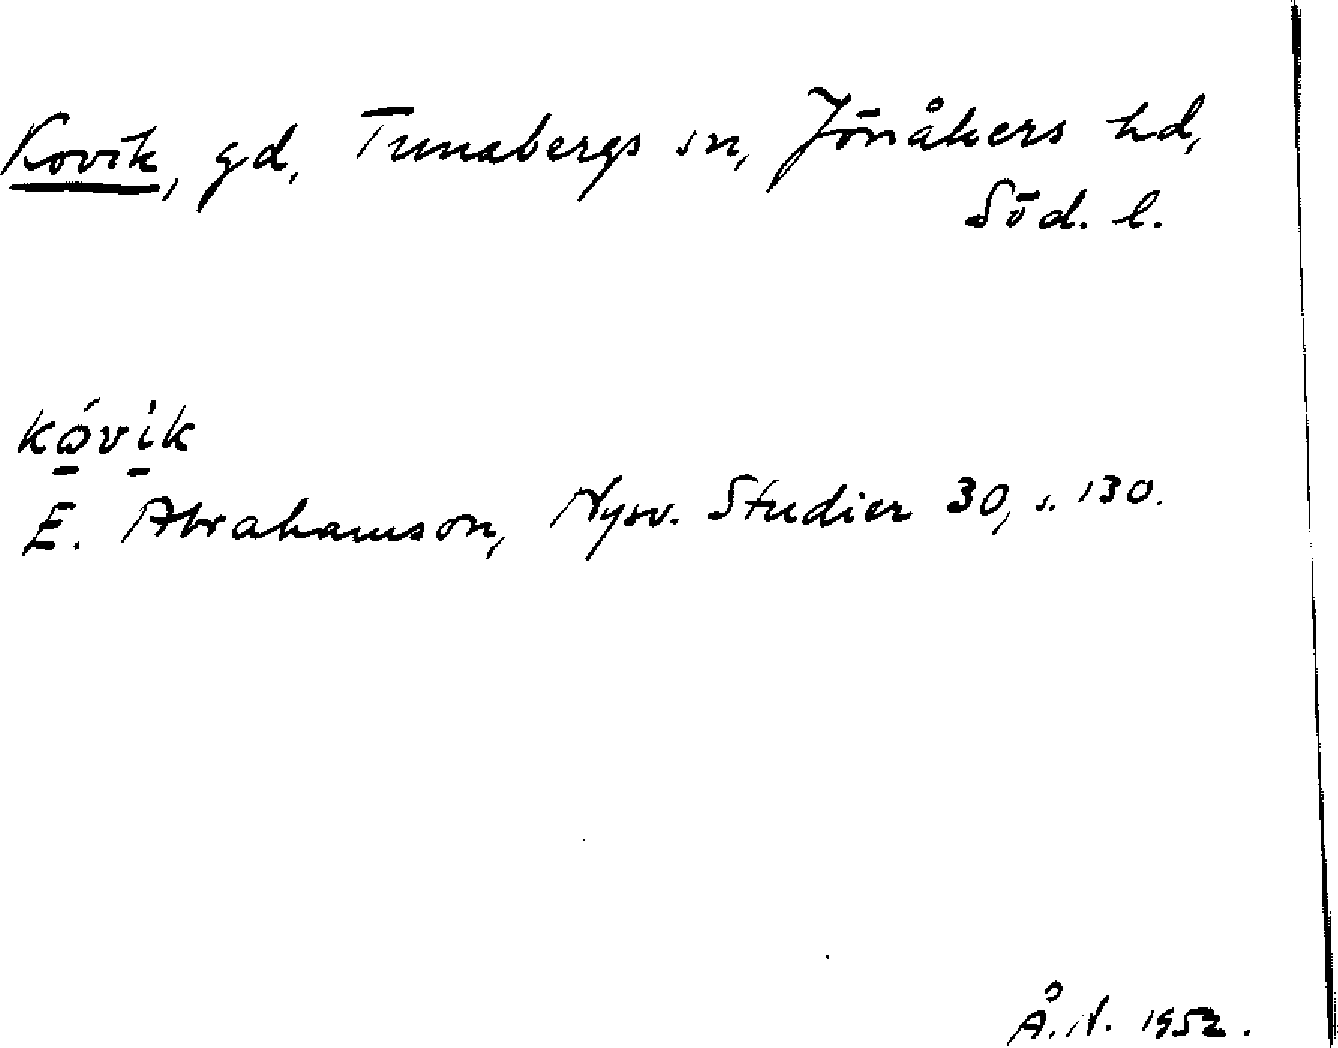 Kovik, gd, Tunabergs sn, Jönåkers hd,
Söd. l.
kóvik
E. Abrahamson, Nysv. Studier 30, s. 130.
Å. N. 1952.